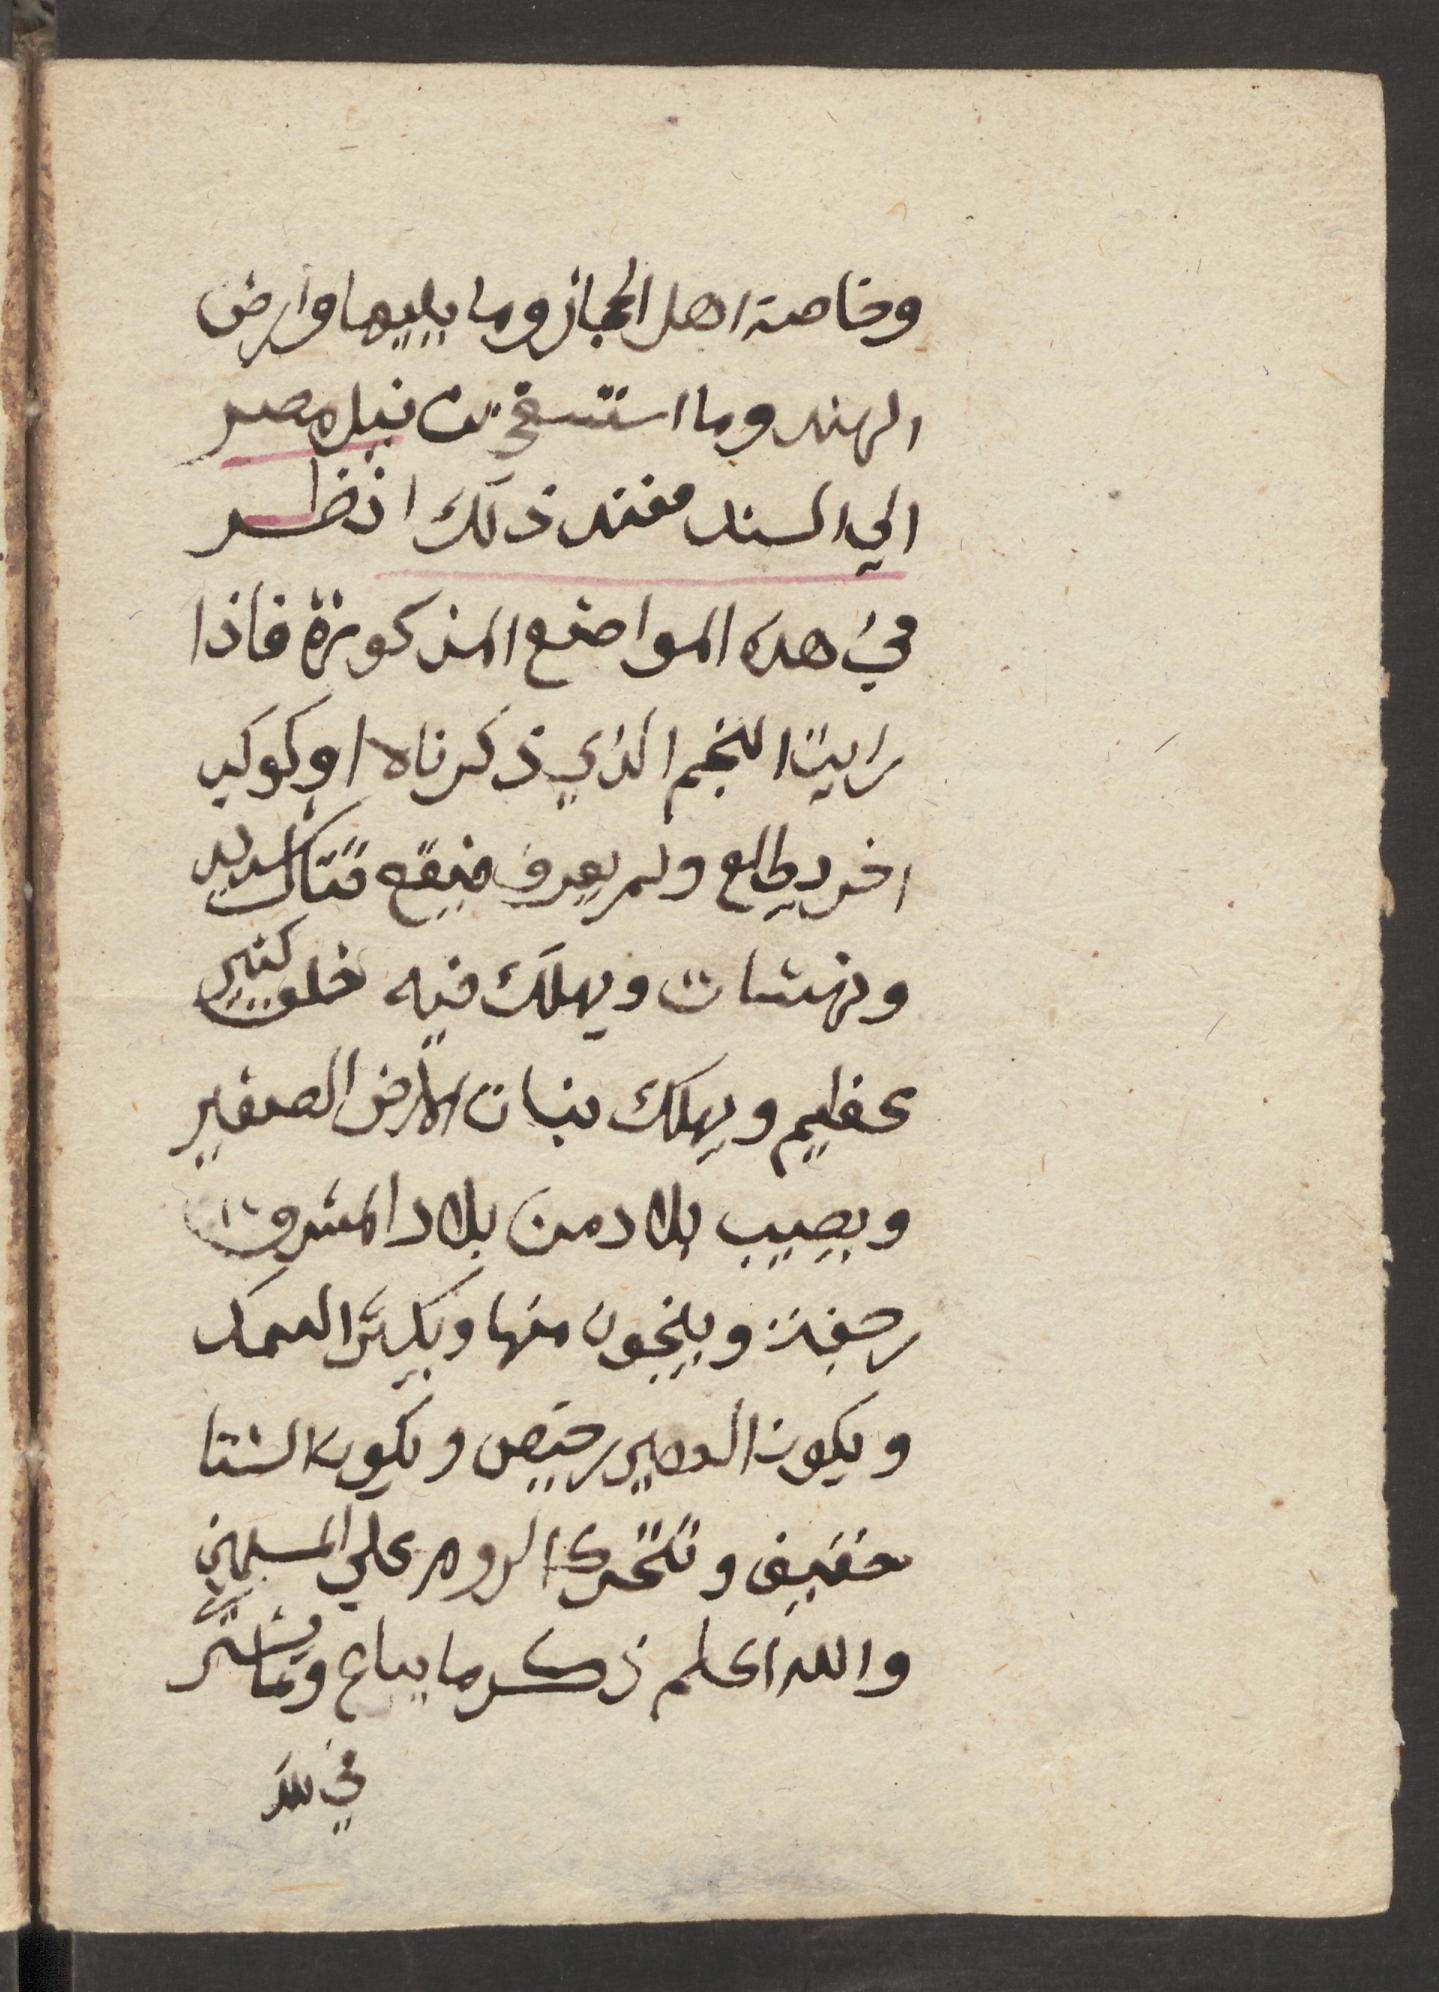 وخاصة اهل الحجاز وما يليها وارض
الهند وما استسقي من نيل مصر
الي السند فعند ذلك انظر
في هده المواضع المذكورة فاذا
رايت النجم الذي ذكرناه او كوكب
اخر يطلع ولم يعرف فيقع قتال شديد
ونهشات ويهلك فيه خلق كثير
عظيم ويهلك نبات الارض الصغير
ويصيب بلاد من بلاد المشرق
رجفة وينجون منها ويكثر السمك
ويكون العصير رخيص ويكون الشتا
خفيف وتتحرك الروم علي المسلمين
والله اعلم ذكر ما يباع وما يشتر
في بلد